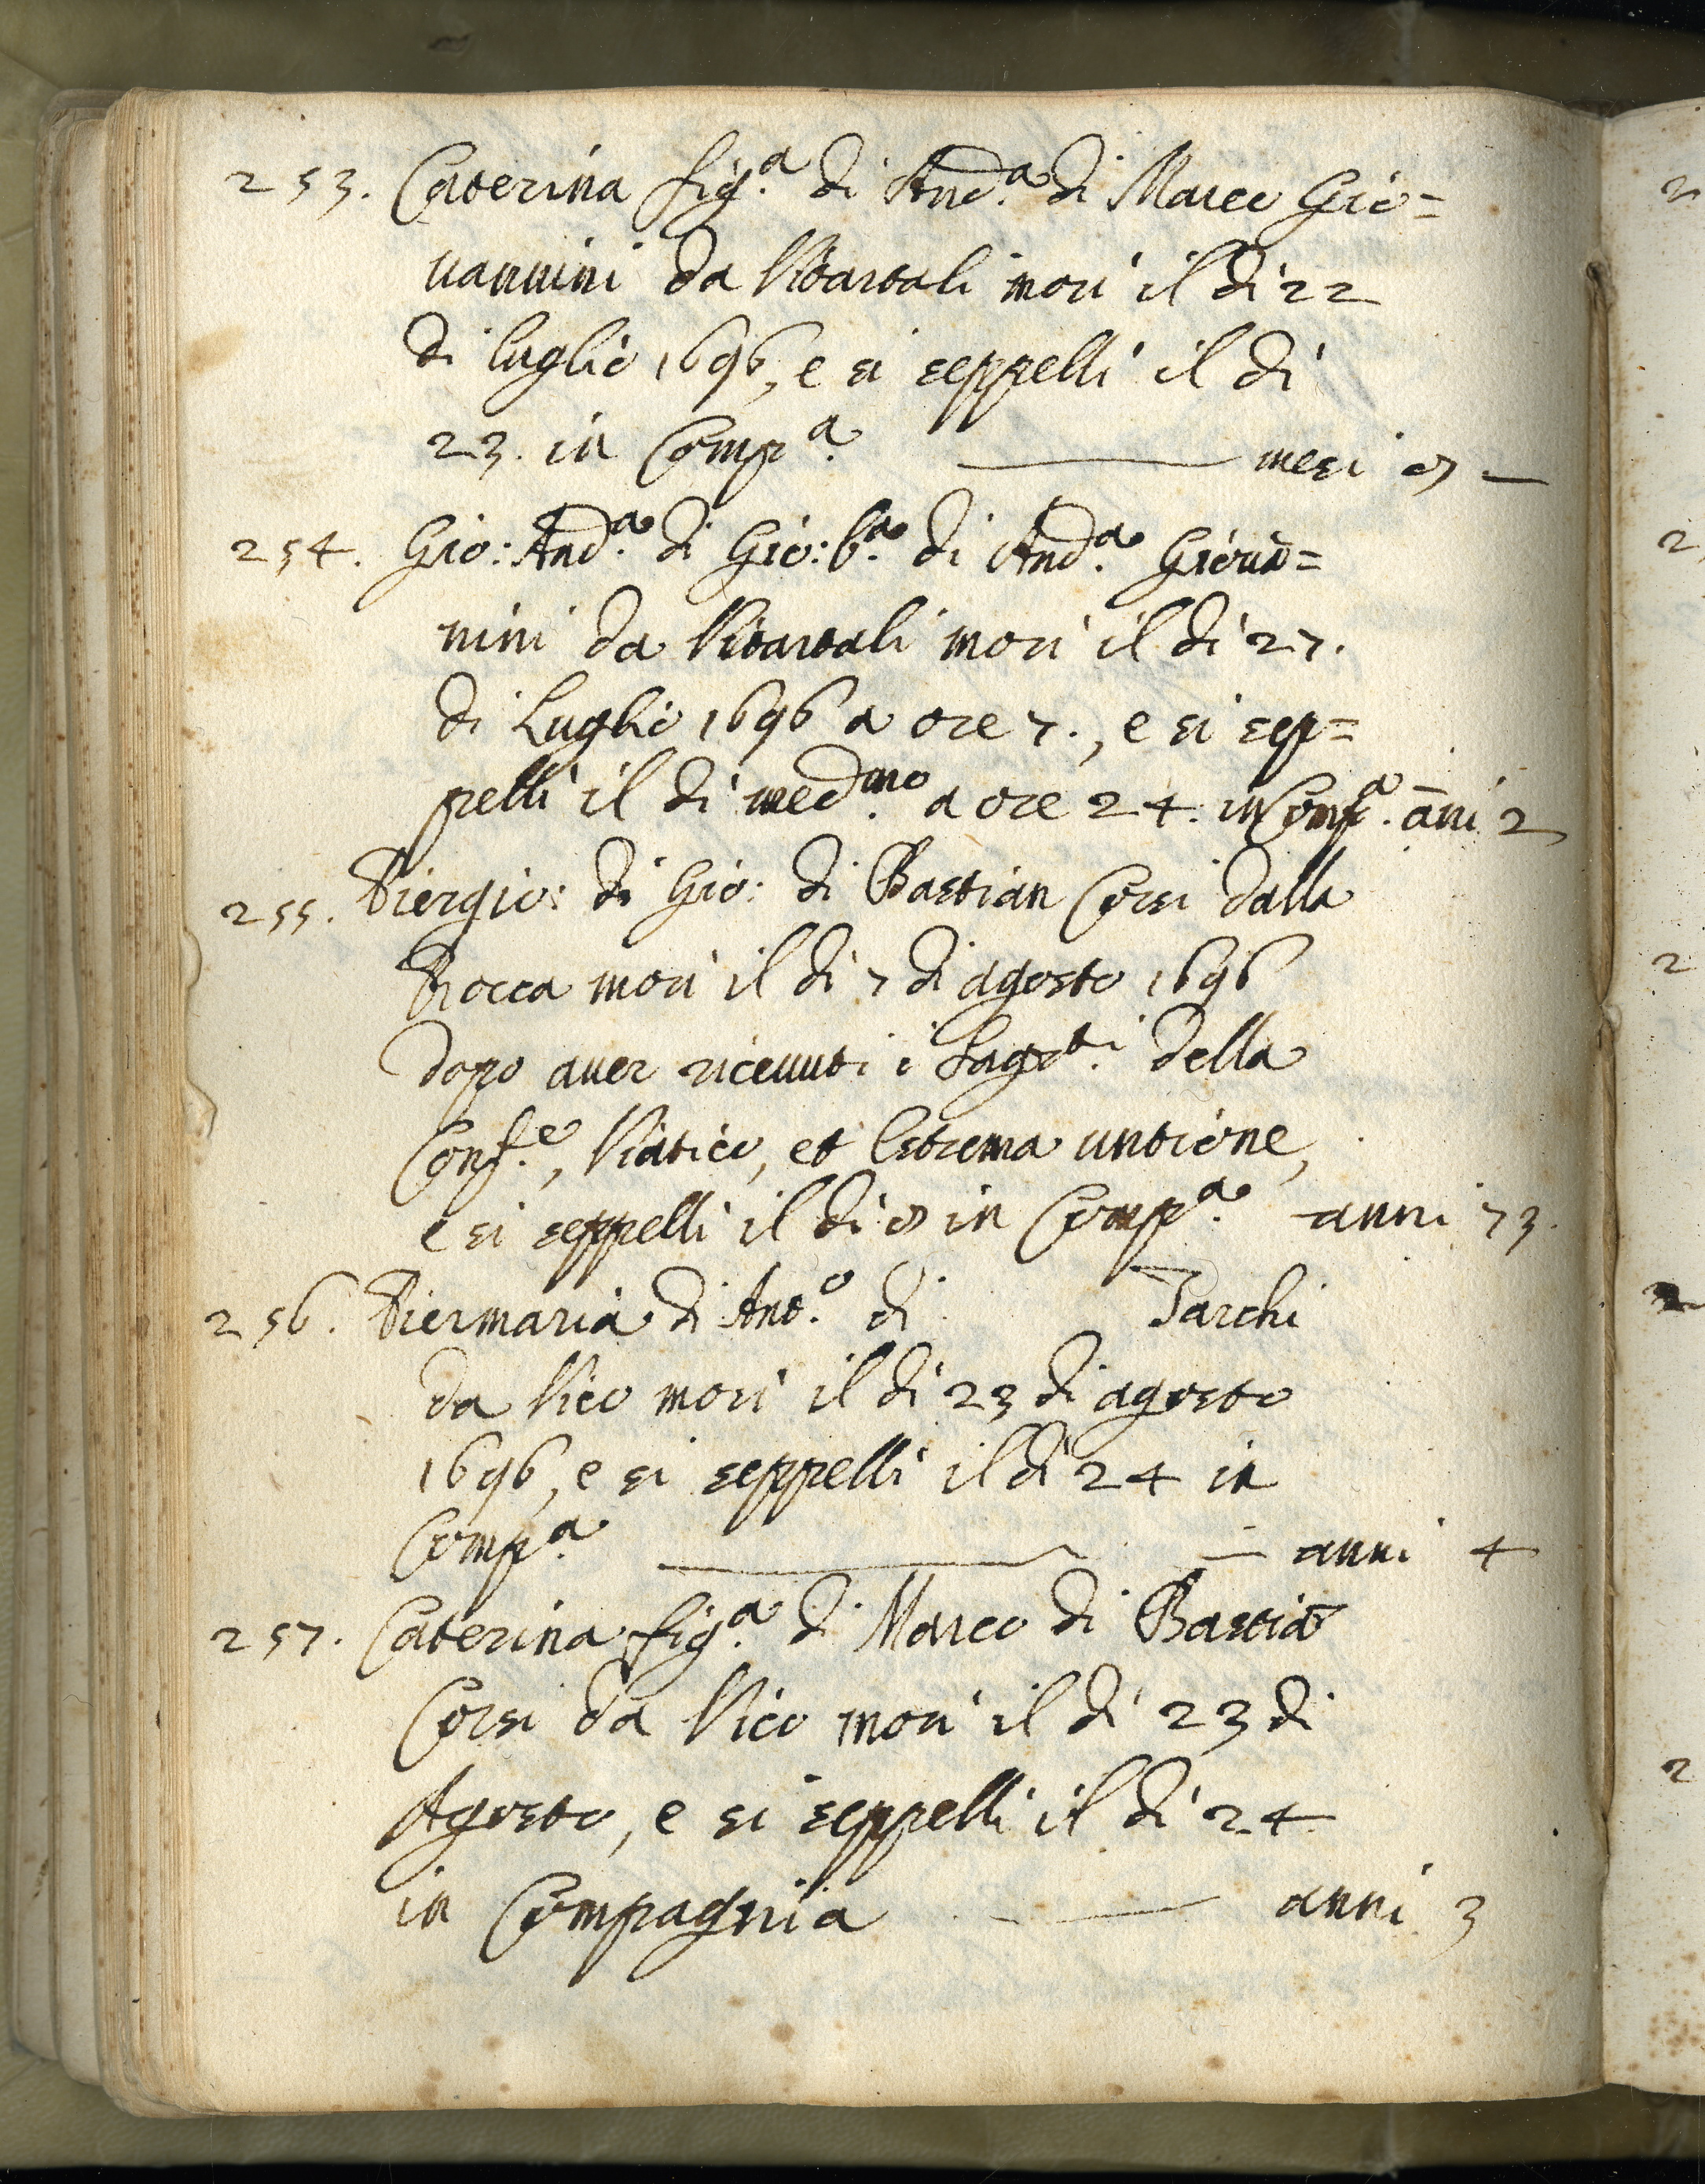 253. Caterina fig.a di And.a di Marco Gio=
uannini da Vitartali morì il dì 22
di luglio 1696, e si seppellì il dì
23. in Comp.a mesi 8
254. Gio: And.a di Gio: b.a di And.a Giouā=
nini da Vitartali morì il dì 27.
di Luglio 1696 a ore 7., e si sep=
pellì il dì med.mo a ore 24. in Comp.a āni 2
255. Piergio: di Gio: di Bastian Corsi dalla
Rocca morì il dì 7 di agosto 1696
dopo auer riceuuti i Sagr.ti della
Conf.e, Viatico, et Estrema untione,
e si seppellì il dì 8 in Comp.a anni 73.
256. Piermaria di Ant.o di Parchi
da Vico morì il dì 23 di agosto
1696, e si seppellì il dì 24 in
Comp.a anni 4
257. Caterina fig.a di Marco di Bastiā
Corsi da Vico morì il dì 23 di
Agosto, e si seppellì il dì 24
in Compagnia anni 3